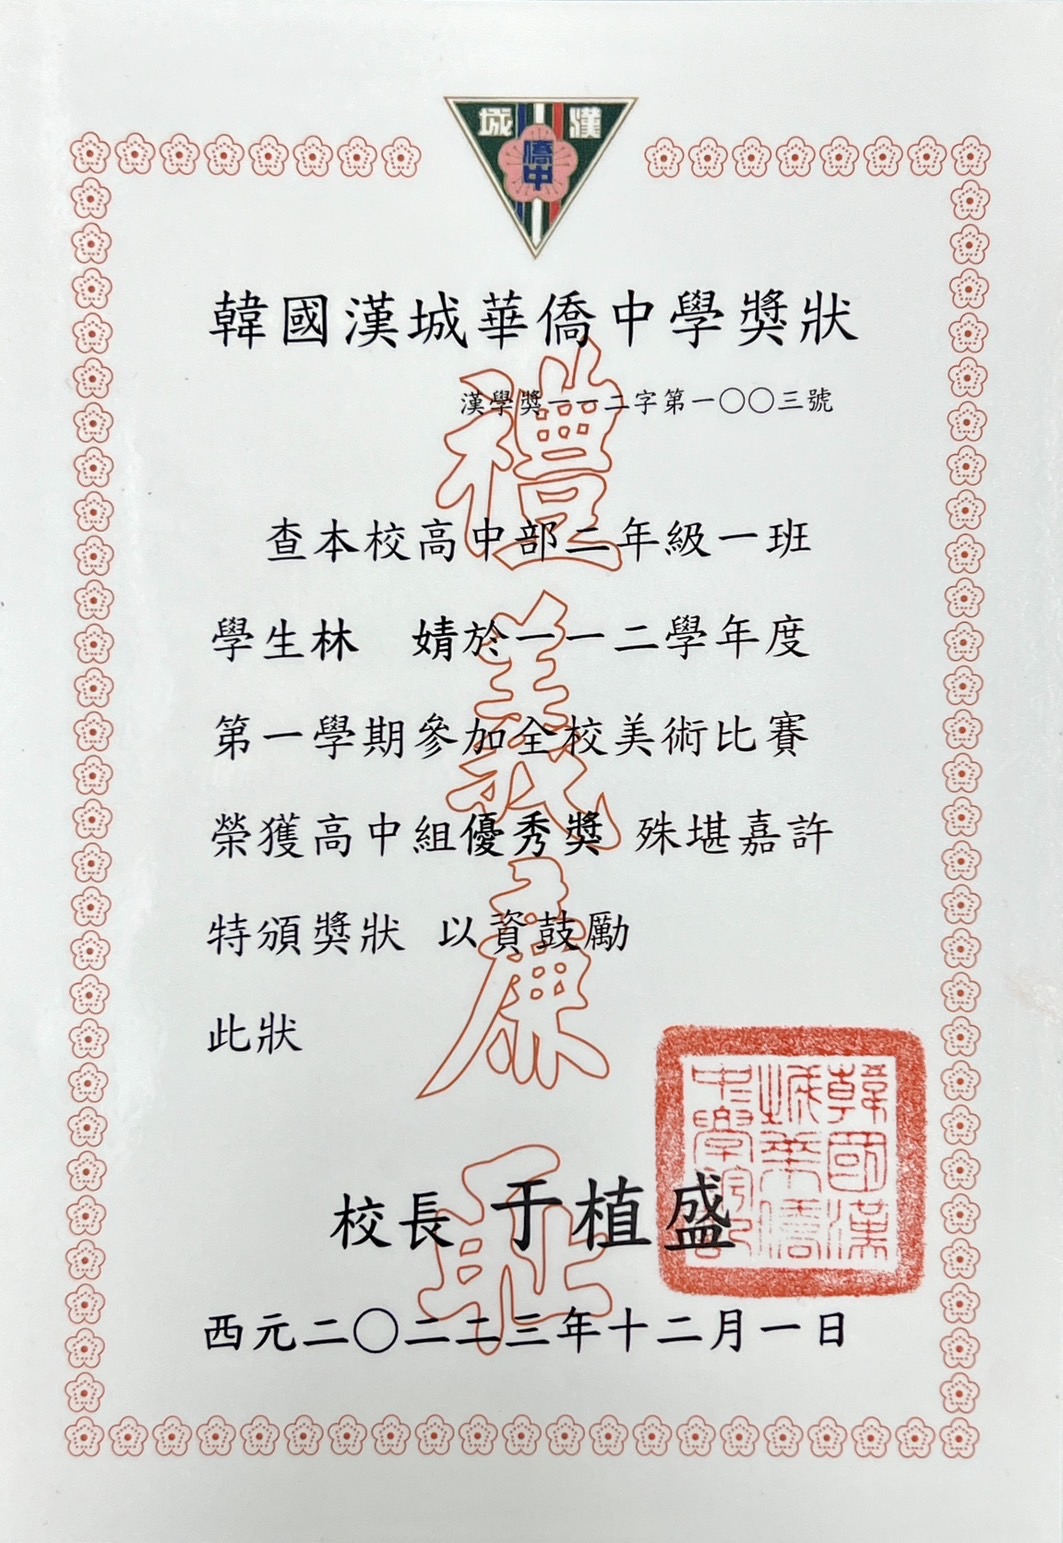 漢城
僑中
韓國漢城華僑中學獎狀
漢學獎一一二字第一〇〇三號
查本校高中部二年級一班
學生林 婧於一一二學年度
第一學期參加全校美術比賽
榮獲高中組優秀獎 殊堪嘉許
特頒獎狀 以資鼓勵
此狀
校長 于植盛
西元二〇二三年十二月一日
禮義廉恥
韓國漢
城華僑
中學鈐記